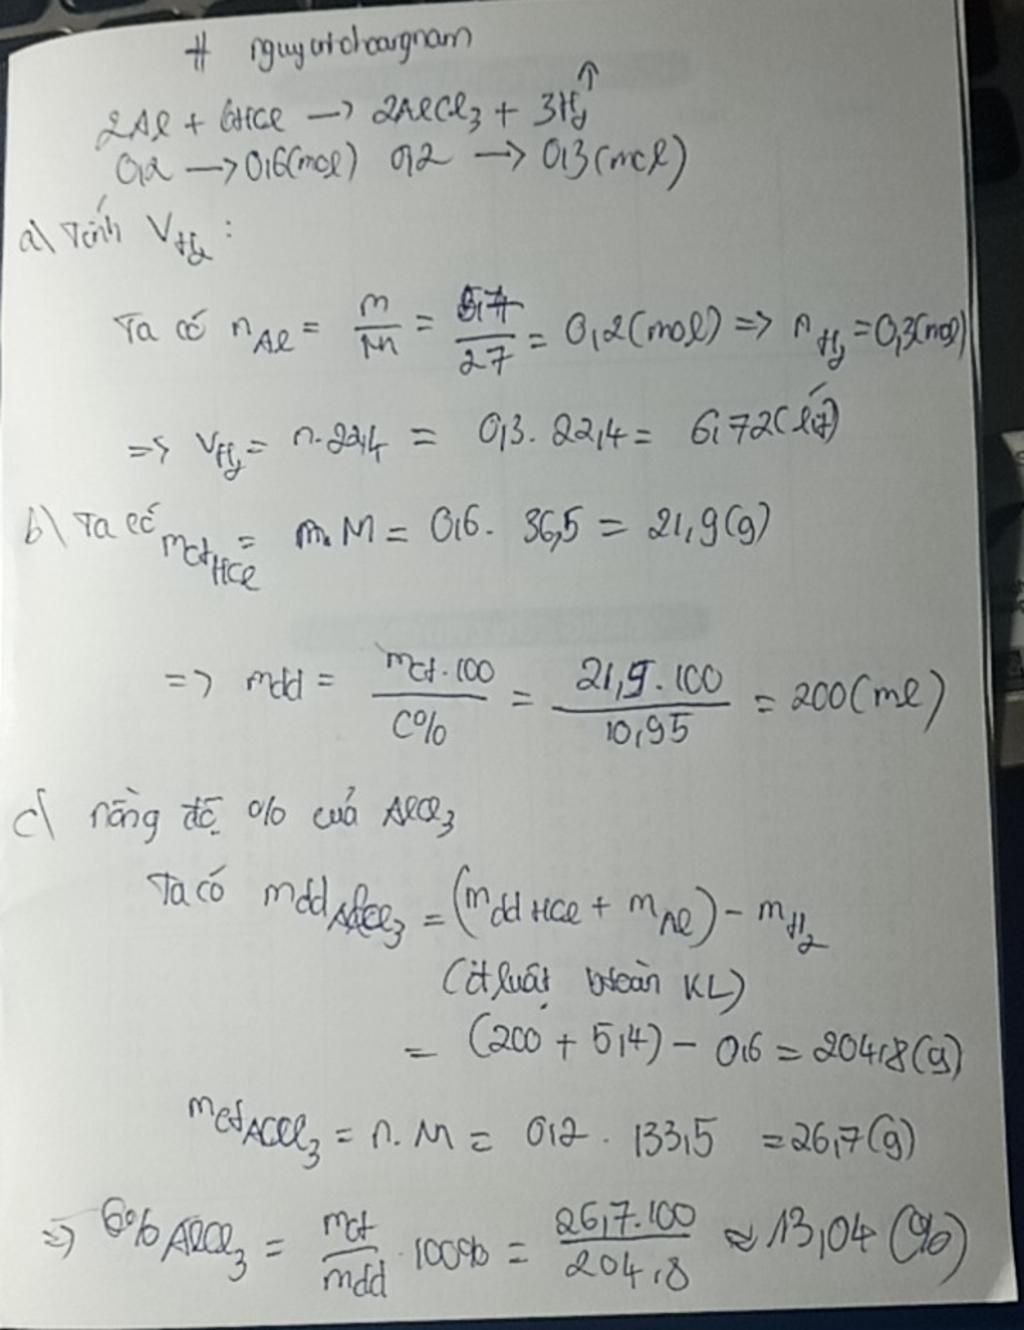 # nguyutchoargnam
2Al + 6HCl → 2AlCl₃ + 3H₂↑
0,2 → 0,6(mol) 0,2 → 0,3(mol)
a\ Tính V_H₂ :
Ta có n_Al = m/M = 5,4/27 = 0,2(mol) => n_H₂ = 0,3(mol)
=> V_H₂ = n.22,4 = 0,3. 22,4 = 6,72(lít)
b\ Ta có mct_HCl = n.M = 0,6. 36,5 = 21,9(g)
=> mdd = mct.100/C% = 21,9.100/10,95 = 200(ml)
c\ nồng độ % của AlCl₃
Ta có mdd_AlCl₃ = (mdd HCl + m_Al) - m_H₂
(Đ luật btoàn KL)
= (200 + 5,4) - 0,6 = 204,8(g)
mct_AlCl₃ = n.M = 0,2 . 133,5 = 26,7(g)
=> C% AlCl₃ = mct/mdd .100% = 26,7.100/204,8 ≈ 13,04 (%)